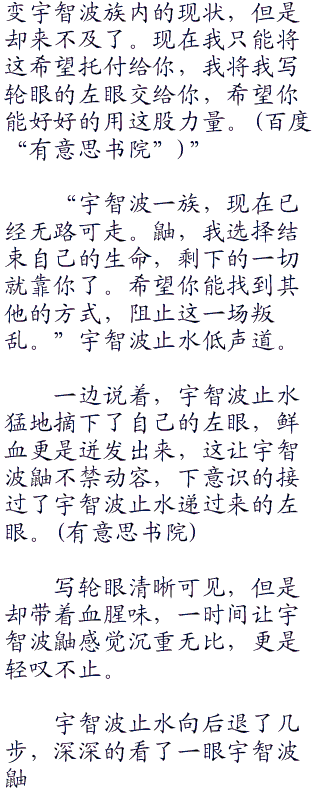 变宇智波族内的现状，但是
却来不及了。现在我只能将
这希望托付给你，我将我写
轮眼的左眼交给你，希望你
能好好的用这股力量。(百度
“有意思书院”)”
“宇智波一族，现在已
经无路可走。鼬，我选择结
束自己的生命，剩下的一切
就靠你了。希望你能找到其
他的方式，阻止这一场叛
乱。”宇智波止水低声道。
一边说着，宇智波止水
猛地摘下了自己的左眼，鲜
血更是迸发出来，这让宇智
波鼬不禁动容，下意识的接
过了宇智波止水递过来的左
眼。(有意思书院)
写轮眼清晰可见，但是
却带着血腥味，一时间让宇
智波鼬感觉沉重无比，更是
轻叹不止。
宇智波止水向后退了几
步，深深的看了一眼宇智波
鼬